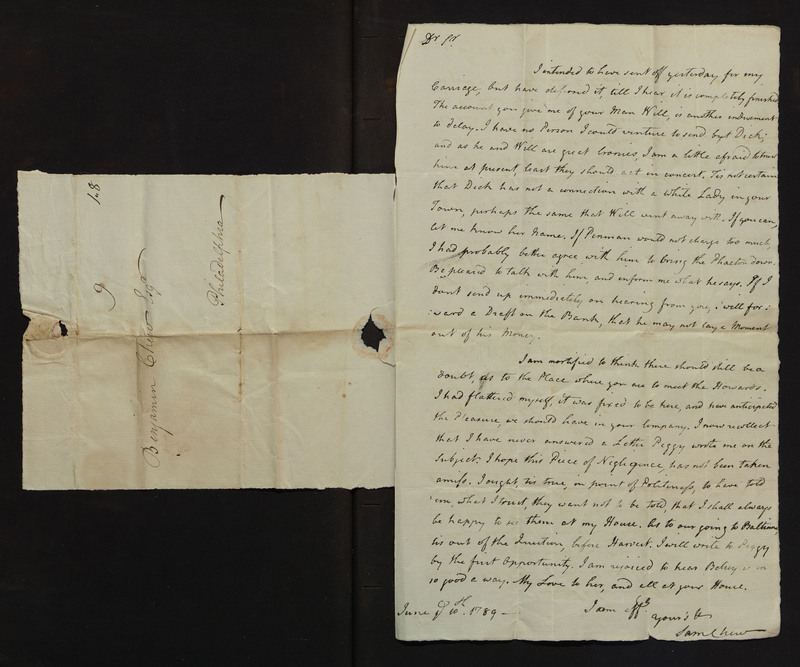 18
9
Benjamin Chew Esqr
Philadelphia
Dr. Sr.
I intended to have sent off yesterday for my
Carriage, but have deferred it, till I hear it is completely finished
The account you give me of your Man Will, is another inducement
to delay. I have no Person I could venture to send but Dick;
and as he and Will are great Cronies, I am a little afraid to trust
him at present, least they should act in concert. Tis not certain
that Dick has not a connection with a White Lady in your
Town, perhaps the same that Will went away with. If you can,
let me know her Name. If Penman would not charge too much,
I had probably better agree with him to bring the Phaeton down.
Be pleased to talk with him, and inform me what he says. If I
dont send up immediately, on hearing from you, I will for:
:ward a Draft on the Bank, that he may not lay a Moment
out of his Money.
I am mortified to think there should still be a
doubt, as to the Place where you are to meet the Howards.
I had flattered myself, it was fixed to be here, and have anticipated
the Pleasure, we should have in your Company. I now recollect
that I have never answered a Letter Peggy wrote me on the
Subject. I hope this Piece of Negligence, has not been taken
amiss. I ought, tis true, in point of Politeness, to have told
'em, what I trust, they want not to be told, that I shall always
be happy to see them at my House. As to our going to Baltimore,
tis out of the Question, before Harvest. I will write to Peggy
by the first Opportunity. I am rejoiced to hear Betsey is in
so good a way. My Love to her, and all at your House.
I am
June 10th. 1789
Yours &
Sam Chew